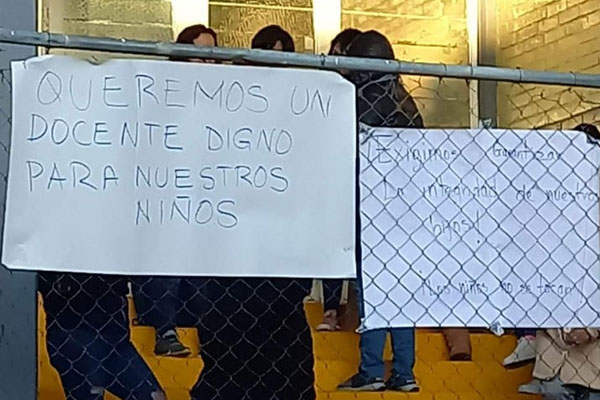 QUEREMOS UN
DOCENTE DIGNO
PARA NUESTROS
NIÑOS
Exigimos Garantizar
La integridad de nuestros
hijos!
¡Los niños no se tocan!